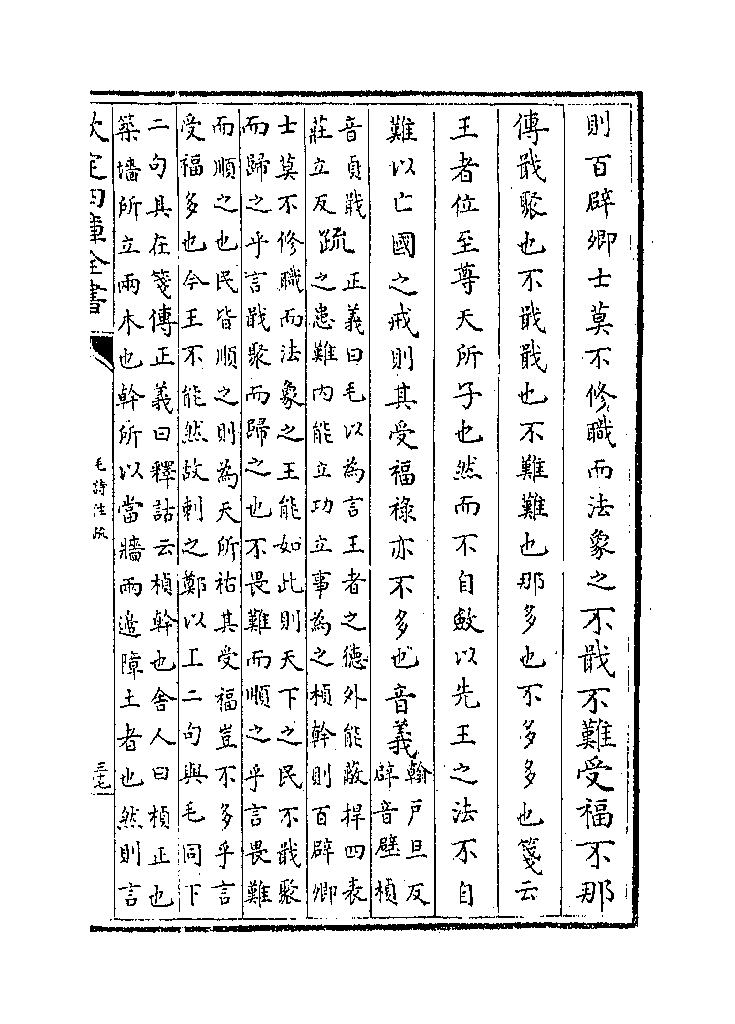 則百辟卿士莫不修職而法象之不戢不難受福不那
傳戢聚也不戢戢也不難難也那多也不多多也箋云
王者位至尊天所子也然而不自斂以先王之法不自
難以亡國之戒則其受福祿亦不多也音義翰戸旦反
辟音壁楨
音貞戢
莊立反疏正義曰毛以為言王者之德外能蔽捍四表
之患難内能立功立事為之楨幹則百辟卿
士莫不修職而法象之王能如此則天下之民不戢聚
而歸之乎言戢聚而歸之也不畏難而順之乎言畏難
而順之也民皆順之則為天所祐其受福豈不多乎言
受福多也今王不能然故刺之鄭以上二句與毛同下
二句具在箋傳正義曰釋詁云楨幹也舍人曰楨正也
築墻所立兩木也幹所以當牆兩邊障土者也然則言
欽定四庫全書
毛詩注疏
三七